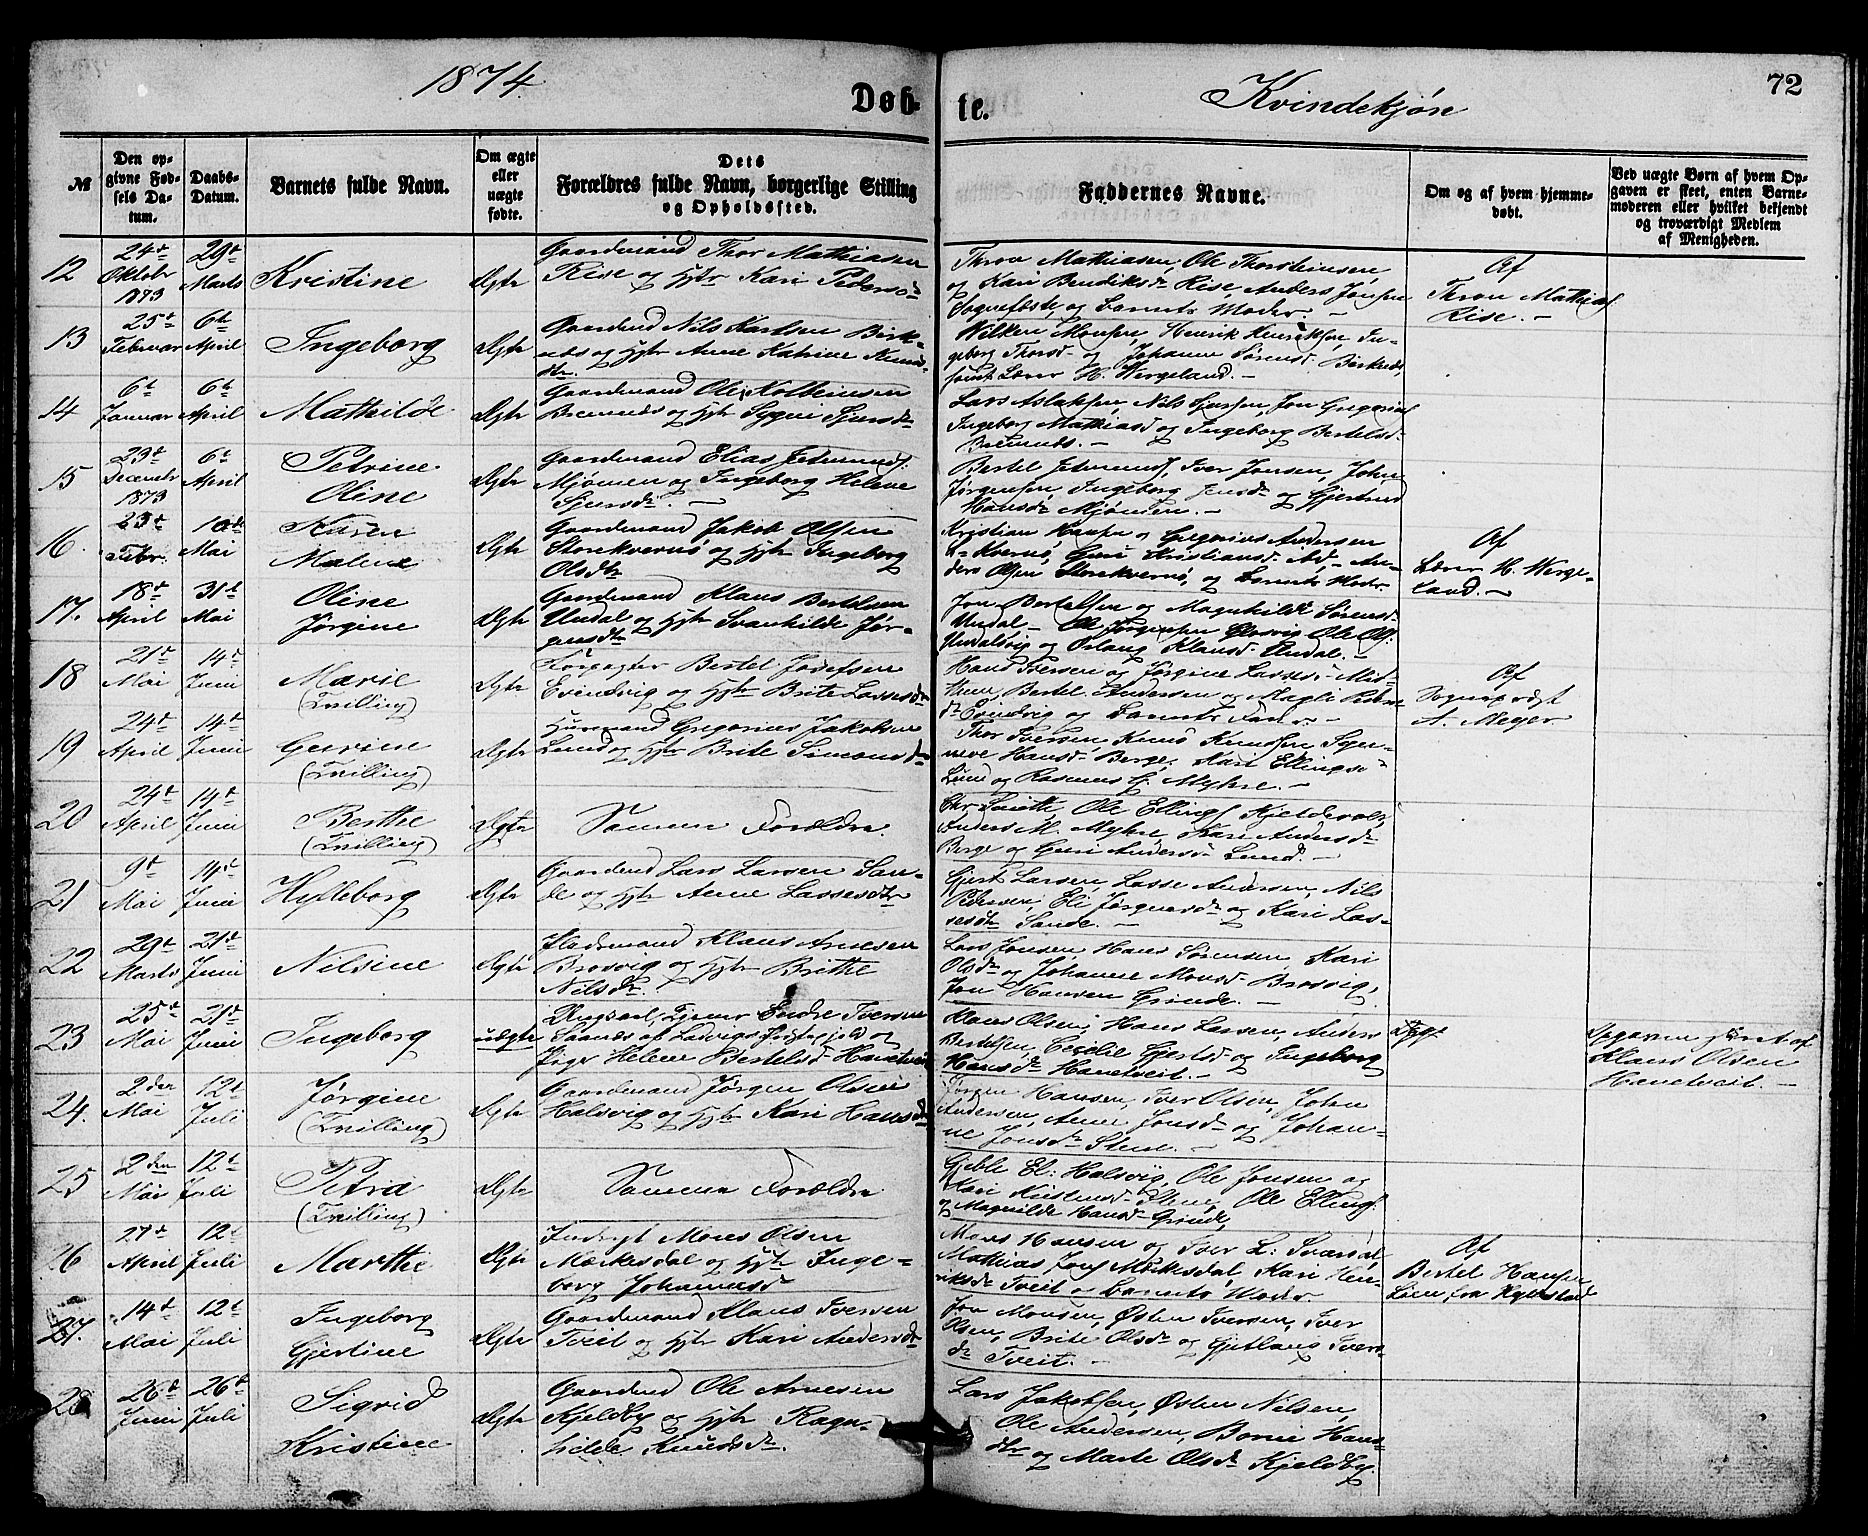 1874
Døbte.
Kvindekjøn
72
№
Den opgivne Fødsels Datum.
Daabs-Datum.
Barnets fulde Navn.
Om ægte eller uægte fødte.
Dets Forældres fulde Navn, borgerlige Stilling og Opholdssted.
Faddernes Navne.
Om og af hvem hjemmedøbt.
Ved uægte Børn af hvem Opgaven er skeet, enten Barnemoderen eller hvilket bekjendt og troværdigt Medlem af Menigheden.
12
24de Oktobr 1873
29de Marts
Kristine
Ægte
Gaardmand Thor Mathiasen
Rise og Hstr Kari Pedersdr
Thron Mathiasen, Ole Thorsteinsen,
og Kari Bendiksdr Rise, Anders Jonsen
Sognefæste og Barnets Moder. —
Af
Thron Mathias
Rise. —
13
25de Februar
6te April
Ingeborg
Ægte
Gaardmd Nils Karlsen Birk-
næs og Hstr Anne Katrine
dtr.
Wilken Monsen, Henrik Henriksen, In-
geborg Thorsdr og Johanne Sørensdr Birknæs
samt Lærer H. Wergeland. —
14
6te Januar
6te April
Mathilde
Ægte
Gaardmand Ole Kolbeinsen
Brenæs og Hstr Sygni Sjursdr
Lars Aslaksen, Nils Sjursen, Jon Gregorius
Ingeborg Mathiasdr og Ingeborg Bertelsdr
Brenæs. —
15
23de Decembr 1873
6te April
Petrine
Oline
Ægte
Gaardmand Elias Jetmunds.
Mjømen og Ingeborg Helene
Sjursdr. —
Bertel Jetmunds, Iver Jonsen, John
Jørgensen, Ingeborg Jensdr og Gjertrud
Hansdr Mjømen. —
16.
23de Febr.
10de Mai
Karen
Malene
Ægte
Gaardmand Jakob Olsen
Storekvernø og Hstr Ingeborg
Olsdtr
Kristian Hansen og Gregorius Andersen
L-Kvernø, Guri Kristiansdr Ad, An-
ders Olsen Storekvernø, og Barnets Moder.
Af
Lærer H. Werge-
land. —
17.
18de April
31te Mai
Oline
Jørgine
Ægte
Gaardmand Klaus Bertelsen
Undal og Hstr Svanhilde Jør-
gensdtr
Jon Bertelsen og Magnhilde Sørensdr
Undal — Ole Jørgensen Brosvig Ole Ols.
Undalsvig og Oslaug Klausdr Undal. —
18
21de Mai
14de Juni
Marie
(Tvilling)
Ægte
Forpagter Bertel Josefsen
Evindvig og Hstr Brite Lassesdtr
Hans Iversen og Jørgine Lassesdr Mid-
tun, Bertel Andersen og Magli Peders-
dr Evindvig og Barnets Fader. —
Af
Sogneprest
A. Meyer
19
24de April
14de Juni
Gurine
(Tvilling)
Ægte
Huusmand Gregorius Jakobsen
Lund og Hstr Brite Simonsdtr
Thor Iversen, Knud Knudsen Syn-
neve Hansdr Berge, Kari Ellingsdr
Lund og Rasmus J. Myhre. —
20
24de April
14de Juni
Berthe
(Tvilling)
Ægte
Samme Forældre.
Chr Smette, Ole Ellings Kjeldevold,
Anders M. Myhre, Kari Andersdr
Berge og Guri Andersdr Lund. —
21
9de Mai
14de Juni
Hylleborg
Ægte
Gaardmd Lars Larsen San-
de og Hstr Anne Lassesdtr
Gjert Larsen, Lasse Andersen, Nils
Pedersen, Eli Jørgensdr og Kari Las-
sesdtr Sande. —
22
29de Marts
21de Juni
Nilsine
Ægte
Stedmand Klaus Arnesen
Brosvig og Hstr Brithe
Nilsdr.
Lars Jonsen, Hans Sørensen Kari
Olsdr og Johanne Monsdr Brosvig,
Jon Hansen Grinde. —
23
25de Mai
21de Juni
Ingeborg
uægte
Ungkarl, Tjener Endre Iversen
Saanes af Ladvigs Prstegjeld og
Pige Helene Bertelsdr Hantveit
Klaus Olsen, Hans Larsen, Anders
Bertelsen, Cecilie Gjertsdr og Ingeborg
Hansdr Hantveit. —
Opgaven gjort af
Klaus Olsen
Hantveit. —
24.
2den Mai
12te Juli
Jørgine
(Tvilling)
Ægte
Gaardmand Jørgen Olsen
Halsvig og Hstr Kari Hansdr
Jørgen Hansen, Iver Olsen, John
Andersen, Anne Jonsdr og Johan-
ne Jonsdr Stene. —
25
2den Mai
12te Juli
Petra
(Tvilling)
Ægte
Samme Forældre
Gjeble El: Halsvig, Ole Jonsen og
Kari Nilsensdr Stene, Ole Ellings
og Magnilde Hansdr Grinde,
26
27de April
12te Juli
Marthe
Ægte
Inderst Mons Olsen
Mørkesdal og Hstr Inge-
borg Johannesdr
Mons Hansen og Iver L: Sværsdal,
Mathias Jons Mørkesdal, Kari Hen-
riksdr Tveit og Barnets Moder
Af
Bertel Hansen
Lien fra Hyllestad
27.
14de Mai
12te Juli
Ingeborg
Gjertine
Ægte
Gaardmand Klaus Iversen
Tveit og Hstr Kari Andersdr
Jon Monsen, Østen Iversen, Iver
Olsen, Brite Olsdr og Gjetlaug Ivers-
dr Tveit. —
28
26de Juni
26de Juli
Sigrid
Kristine
Ægte
Gaardmd Ole Arnesen
Kjeldby og Hstr Ragn-
hilde Knudsdr.
Lars Jakobsen, Østen Nilsen,
Ole Andersen, Borni Hans-
dtr og Marte Olsdr Kjeldby.